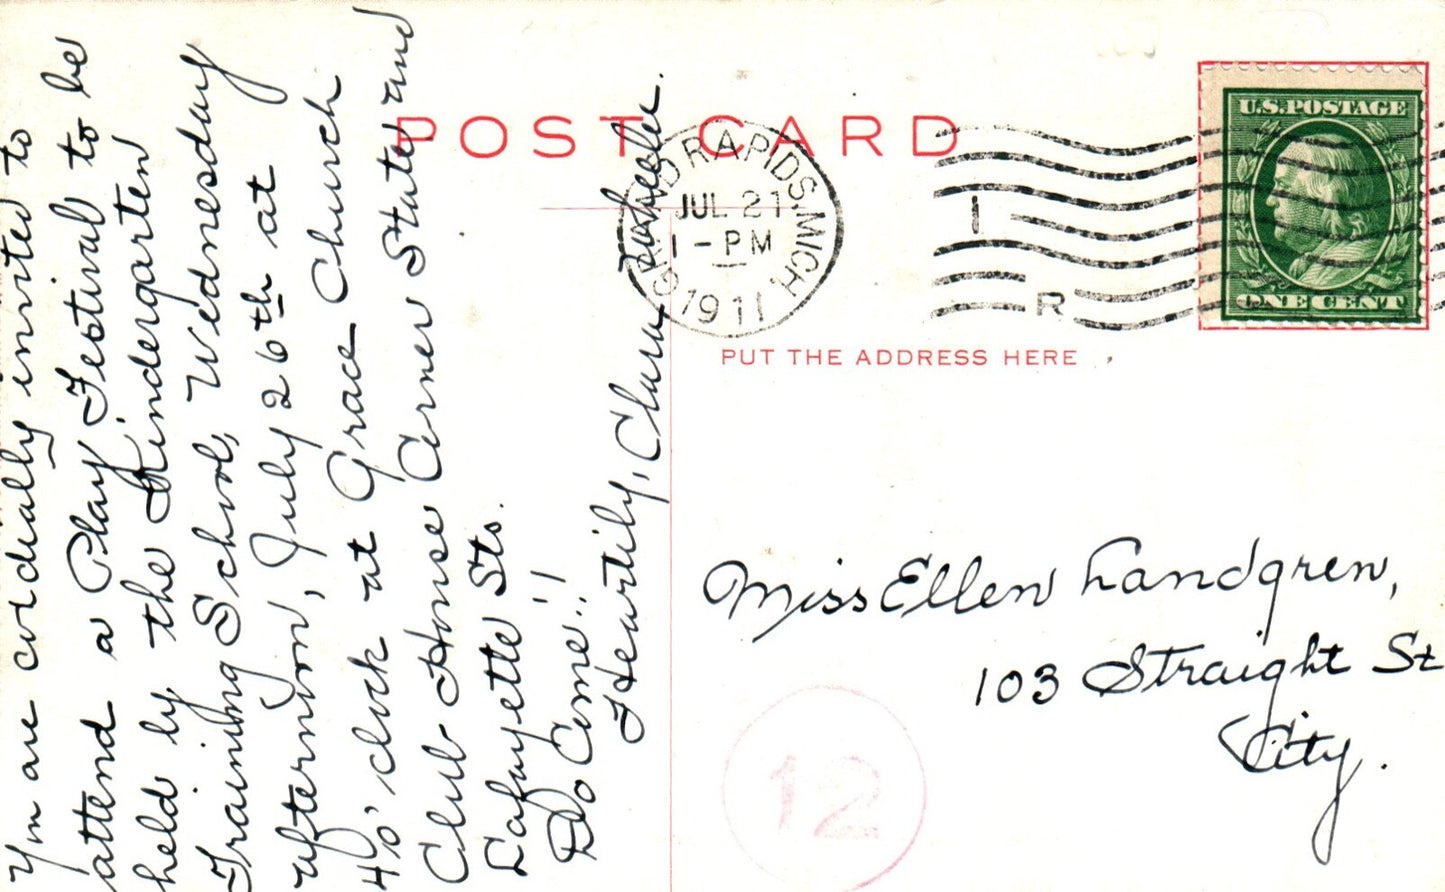 POST CARD
GRAND RAPIDS, MICH.
JUL 21
1-PM
1911
1
R
U.S. POSTAGE
ONE CENT
PUT THE ADDRESS HERE
You are cordially invited to
attend a Play Festival to be
held by the Kindergarten
Training School, Wednesday
afternoon, July 26th at
4 o'clock at Grace Church
Club House Corner State and
Lafayette Sts.
Do Come!!
Heartily, Clara
Miss Ellen Landgren,
103 Straight St
City.
12